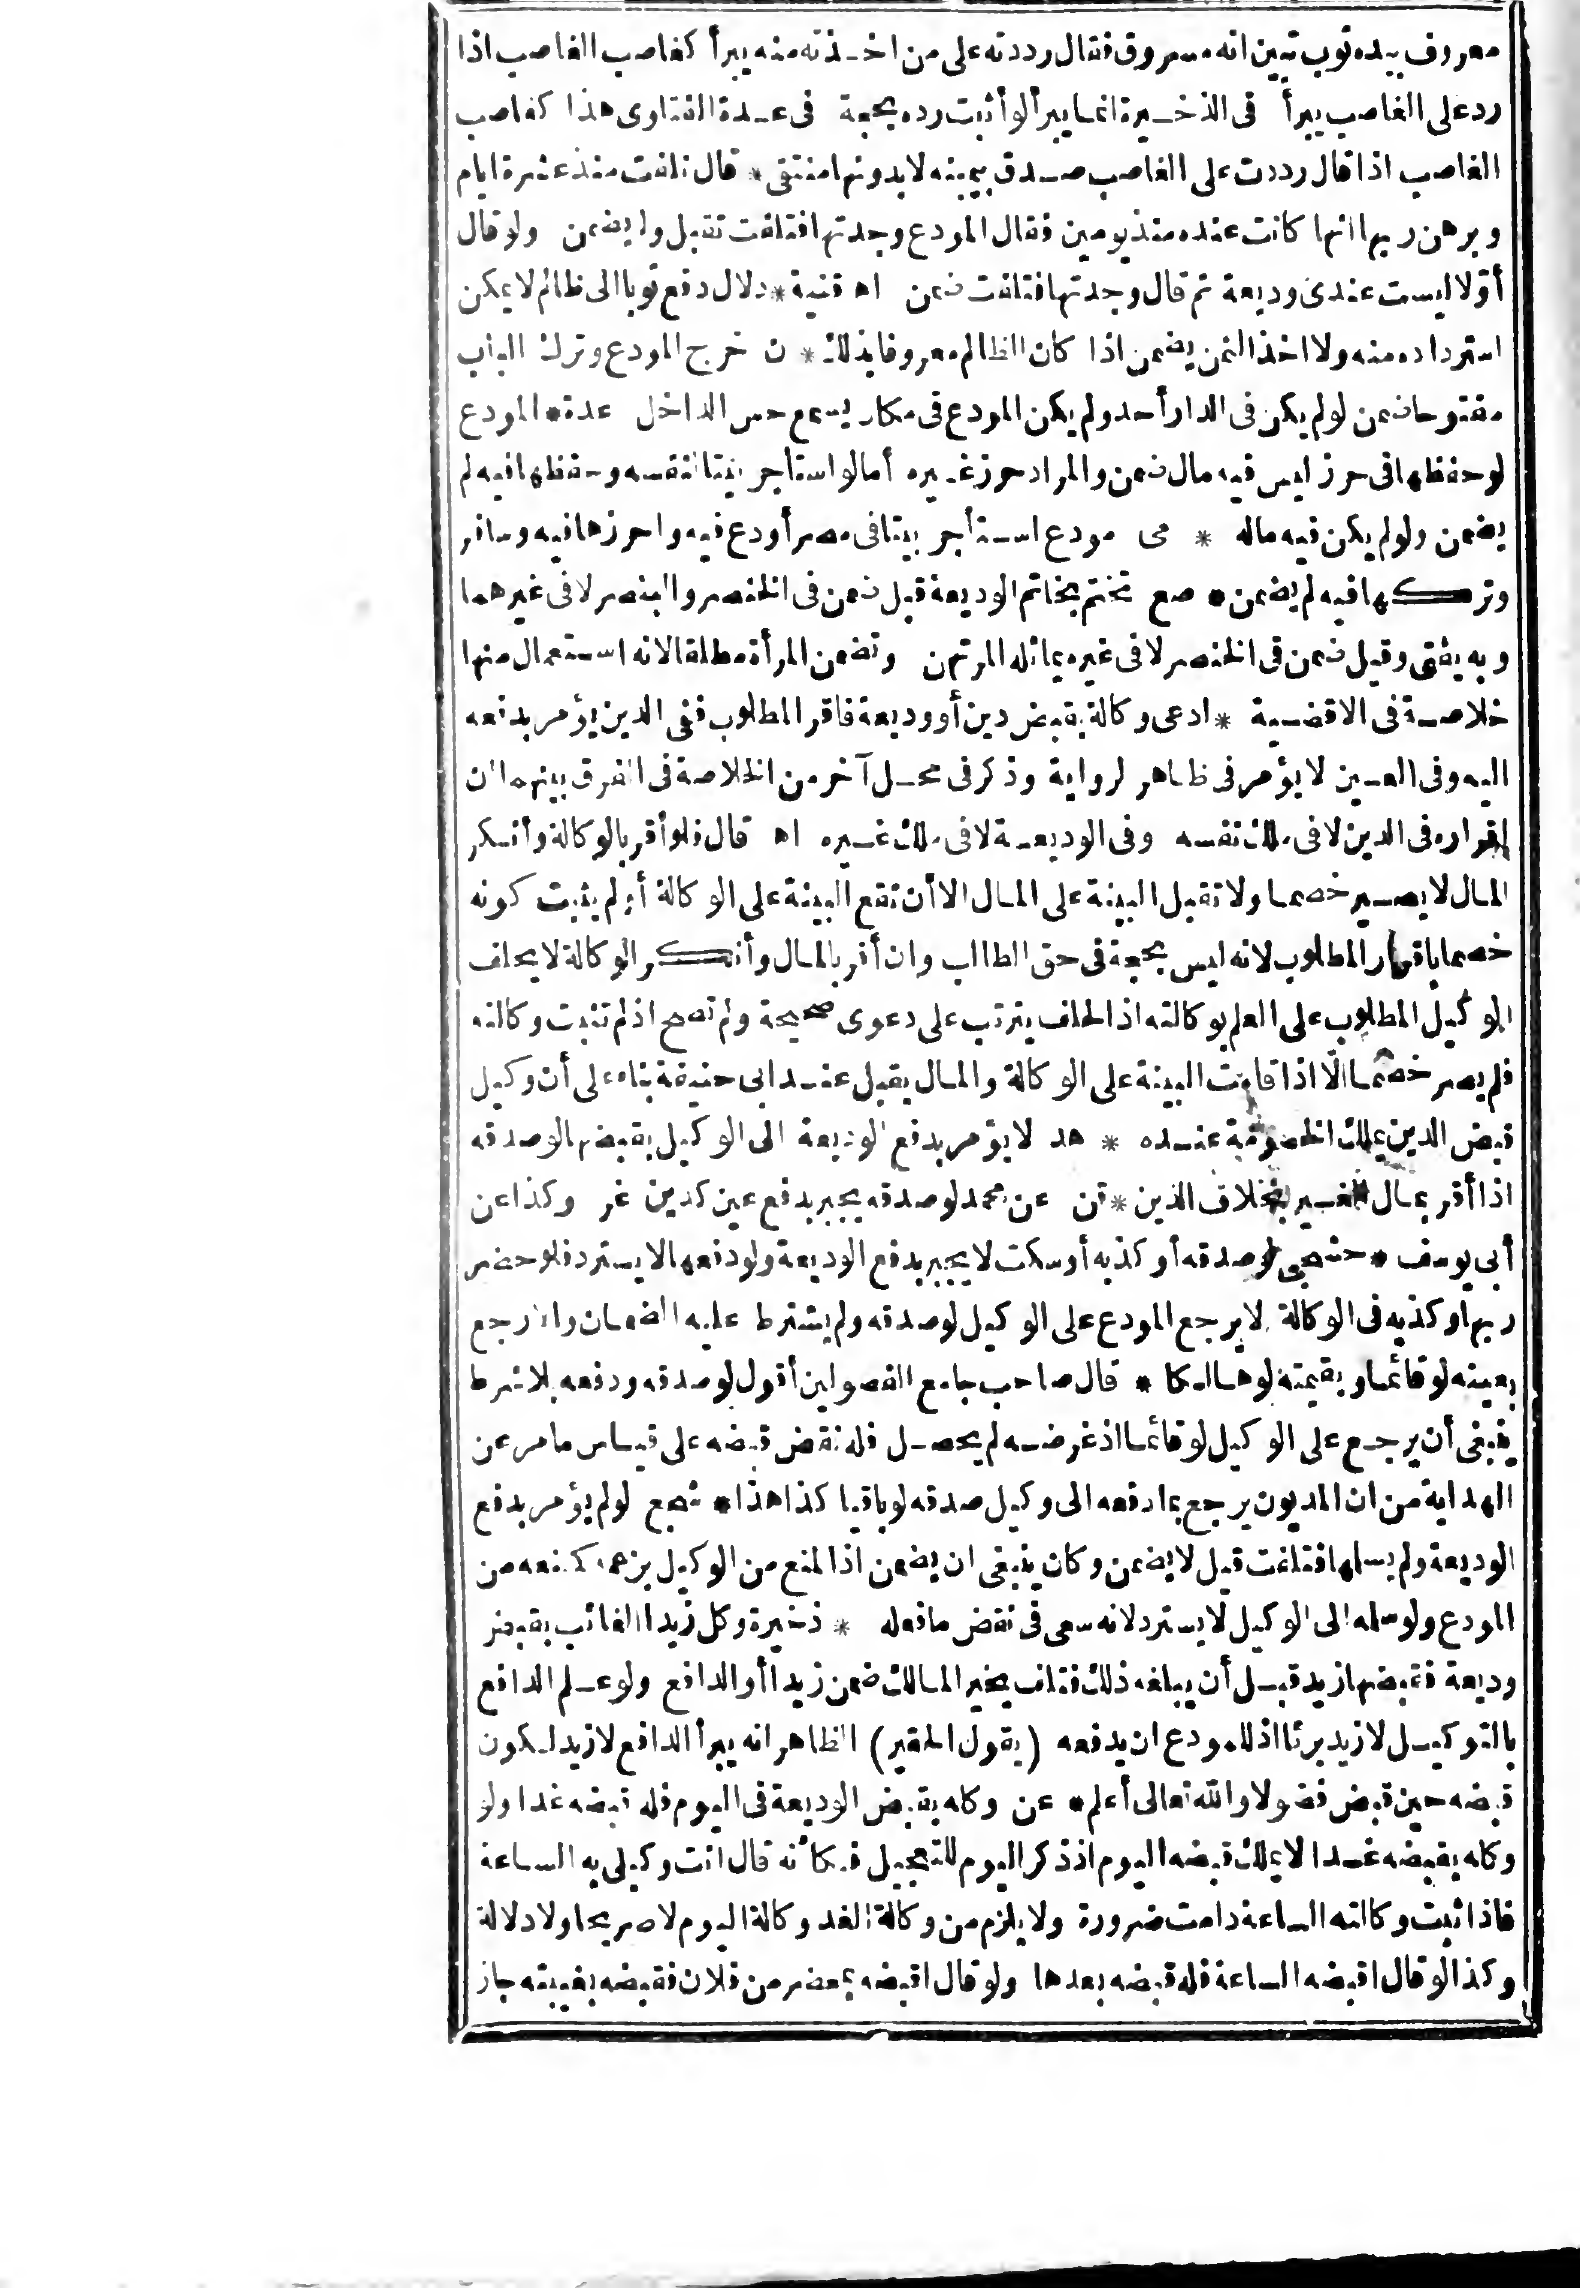 معروف بيده ثوب تبين انه مسروق فقال رددته على من اخذته منه يبرأ كغاصب الغاصب اذا
رد على الغاصب يبرأ فى الذخيرة انما يبرأ لو أثبت رده بحجة فى عدة الفتاوى هذا كغاصب
الغاصب اذا قال رددت على الغاصب صدق بيمينه لا بدونها منتقى * قال تلفت منذ عشرة ايام
وبرهن ربها انها كانت عنده منذ يومين فقال المودع وجدتها فتلفت تقبل ولا يضمن ولو قال
أولا ليست عندى وديعة ثم قال وجدتها فتلفت ضمن اه قنية * دلال دفع ثوبا الى ظالم لا يمكن
استرداده منه ولا اخذ الثمن يضمن اذا كان الظالم معروفا بذلك * ن خرج المودع وترك الباب
مفتوحا ضمن لو لم يكن فى الدار أحد ولم يكن المودع فى مكان يسمع حس الداخل عدة * المودع
لو حفظها فى حرز ليس فيه مال ضمن والمراد حرز غيره أما لو استأجر بيتا لنفسه وحفظها فيه لم
يضمن ولو لم يكن فيه ماله * مى مودع استأجر بيتا فى مصر أودع فيه واحرزها فيه وسافر
وتركها فيه لم يضمن * صع تختم بخاتم الوديعة قيل ضمن فى الخنصر والبنصر لا فى غيرهما
وبه يفتى وقيل ضمن فى الخنصر لا فى غيره يماثله المرتهن وتضمن المرأة مطلقا لانه استعمال منها
خلاصة فى الاقضية * ادعى وكالة بقبض دين أو وديعة فاقر المطلوب ففى الدين يؤمر بدفعه
اليه وفى العين لا يؤمر فى ظاهر لرواية وذكر فى محل آخر من الخلاصة فى الفرق بينهما ان
اقراره فى الدين لا فى ملك نفسه وفى الوديعة لا فى ملك غيره اه قال فلو أقر بالوكالة وأنكر
المال لا يصير خصما ولا تقبل البينة على المال الا أن تقع البينة على الوكالة أى لم يثبت كونه
خصما باقرار المطلوب لانه ليس بحجة فى حق الطالب وان أقر بالمال وأنكر الوكالة لا يحلف
الوكيل المطلوب على العلم بوكالته اذ الحلف يترتب على دعوى صحيحة ولم تصح اذ لم تثبت وكالته
فلم يصر خصما الا اذا قامت البينة على الوكالة والمال يقبل عند ابى حنيفة بناء على أن وكيل
قبض الدين يملك الخصومة عنده * هد لا يؤمر بدفع الوديعة الى الوكيل بقبضها لو صدقه
اذا أقر بمال الغير بخلاف الدين * قن عن محمد لو صدقه يجبر بدفع عين كدين غر وكذا عن
أبى يوسف * حشجى لو صدقه أو كذبه أو سكت لا يجبر بدفع الوديعة ولو دفعها لا يسترد فلو حضر
ربها وكذبه فى الوكالة لا يرجع المودع على الوكيل لو صدقه ولم يشترط عليه الضمان والا رجع
بعينه لو قائما وبقيمته لو هالكا * قال صاحب جامع الفصولين أقول لو صدقه ودفعه بلا شرط
ينبغى أن يرجع على الوكيل لو قائما اذ غرضه لم يحصل فله نقض قبضه على قياس ما مر عن
الهداية من ان المديون يرجع بما دفعه الى وكيل صدقه لو باقيا كذا هذا * شجع لو لم يؤمر بدفع
الوديعة ولم يسلمها فتلفت قيل لا يضمن وكان ينبغى ان يضمن اذ المنع من الوكيل بزعمه كمنعه من
المودع ولو سلمه الى الوكيل لا يسترد لانه سعى فى نقض ما فعله * ذخيرة وكل زيدا الغائب بقبض
وديعة فقبضها زيد قبل أن يبلغه ذلك فتلف يخير المالك ضمن زيدا أو الدافع ولو علم الدافع
بالتوكيل لا زيد برئا اذ للمودع ان يدفعه (يقول الحقير) الظاهر انه يبرأ الدافع لا زيد لكون
قبضه حين قبض فضولا والله تعالى أعلم * عن وكله بقبض الوديعة فى اليوم فله قبضه غدا ولو
وكله بقبضه غدا لا يملك قبضه اليوم اذ ذكر اليوم للتعجيل فكأنه قال انت وكيلى به الساعة
فاذا ثبت وكالته الساعة دامت ضرورة ولا يلزم من وكالة الغد وكالة اليوم لا صريحا ولا دلالة
وكذا لو قال اقبضه الساعة فله قبضه بعدها ولو قال اقبضه بمحضر من فلان فقبضه بغيبته جاز